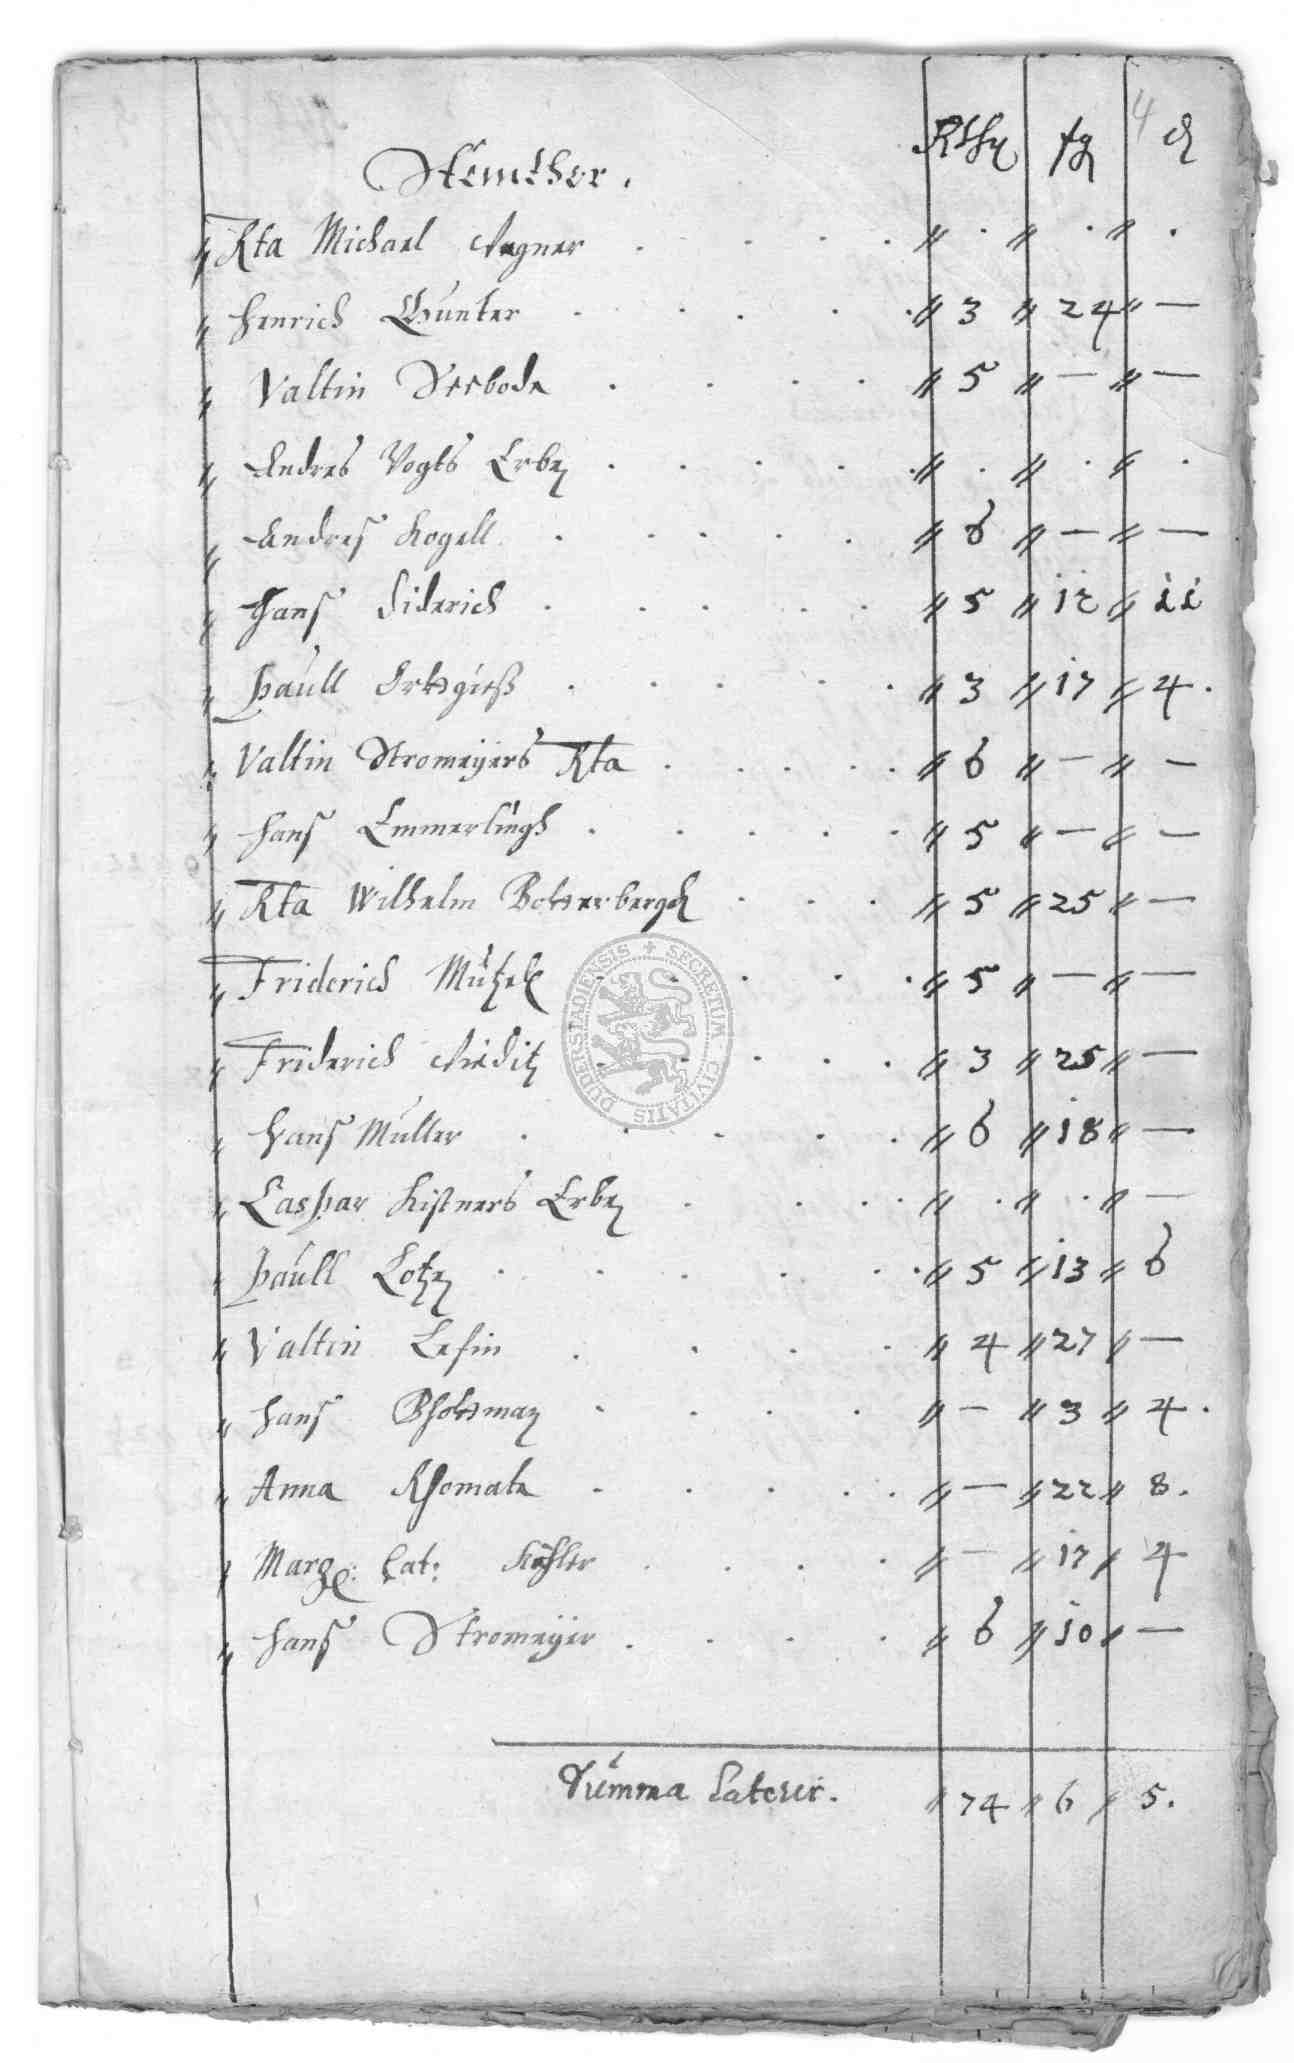 4
Stemther. Rthlr fg d
" Rta Michael Wegner . . . . " . " . " .
" Henrich Gunter . . . . " 3 " 24 " —
" Valtin Seebode . . . . " 5 " — " —
" Andres Vogts Erben . . . . " . " . " .
" Andres Kogell . . . . " 6 " — " —
" Hans Diderich . . . . " 5 " 12 " 11
" Paull . . . . " 3 " 17 " 4 .
" Valtin Stromeyers Rta . . . . " 6 " — " —
" Hans Emmerlingh . . . . " 5 " — " —
" Rta Wilhelm . . . " 5 " 25 " —
" Friderich Mützel . . . . " 5 " — " —
" Friderich . . . . " 3 " 25 " —
" Hans Muller . . . . " 6 " 18 " —
" Caspar Kistners Erben . . . . " . " . " —
" Paull Lotze . . . . " 5 " 13 " 6
" Valtin Lesin . . . . " 4 " 27 " —
" Hans . . . . " — " 3 " 4 .
" Anna . . . . " — " 22 " 8 .
" Marg: Cat: Köhler . . . . " — " 17 " 4
" Hans Stromeyer . . . . " 6 " 10 " —
Summa Lateris . " 74 " 6 " 5 .
SECRETUM CIVITATIS DUDERSTADIENSIS